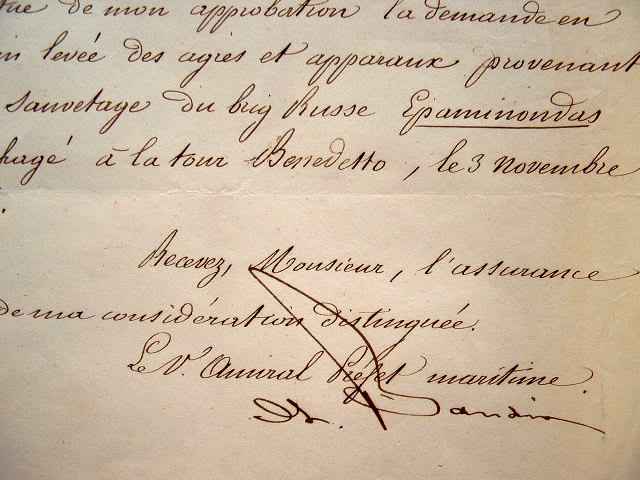 tue de mon approbation la demande en
in levée des agrès et apparaux provenant
sauvetage du brig Russe Epaminondas
hagé à la tour Benedetto, le 3 novembre
Recevez, Monsieur, l'assurance
de ma considération distinguée.
Le V. Amiral Préfet maritime.
Baudin